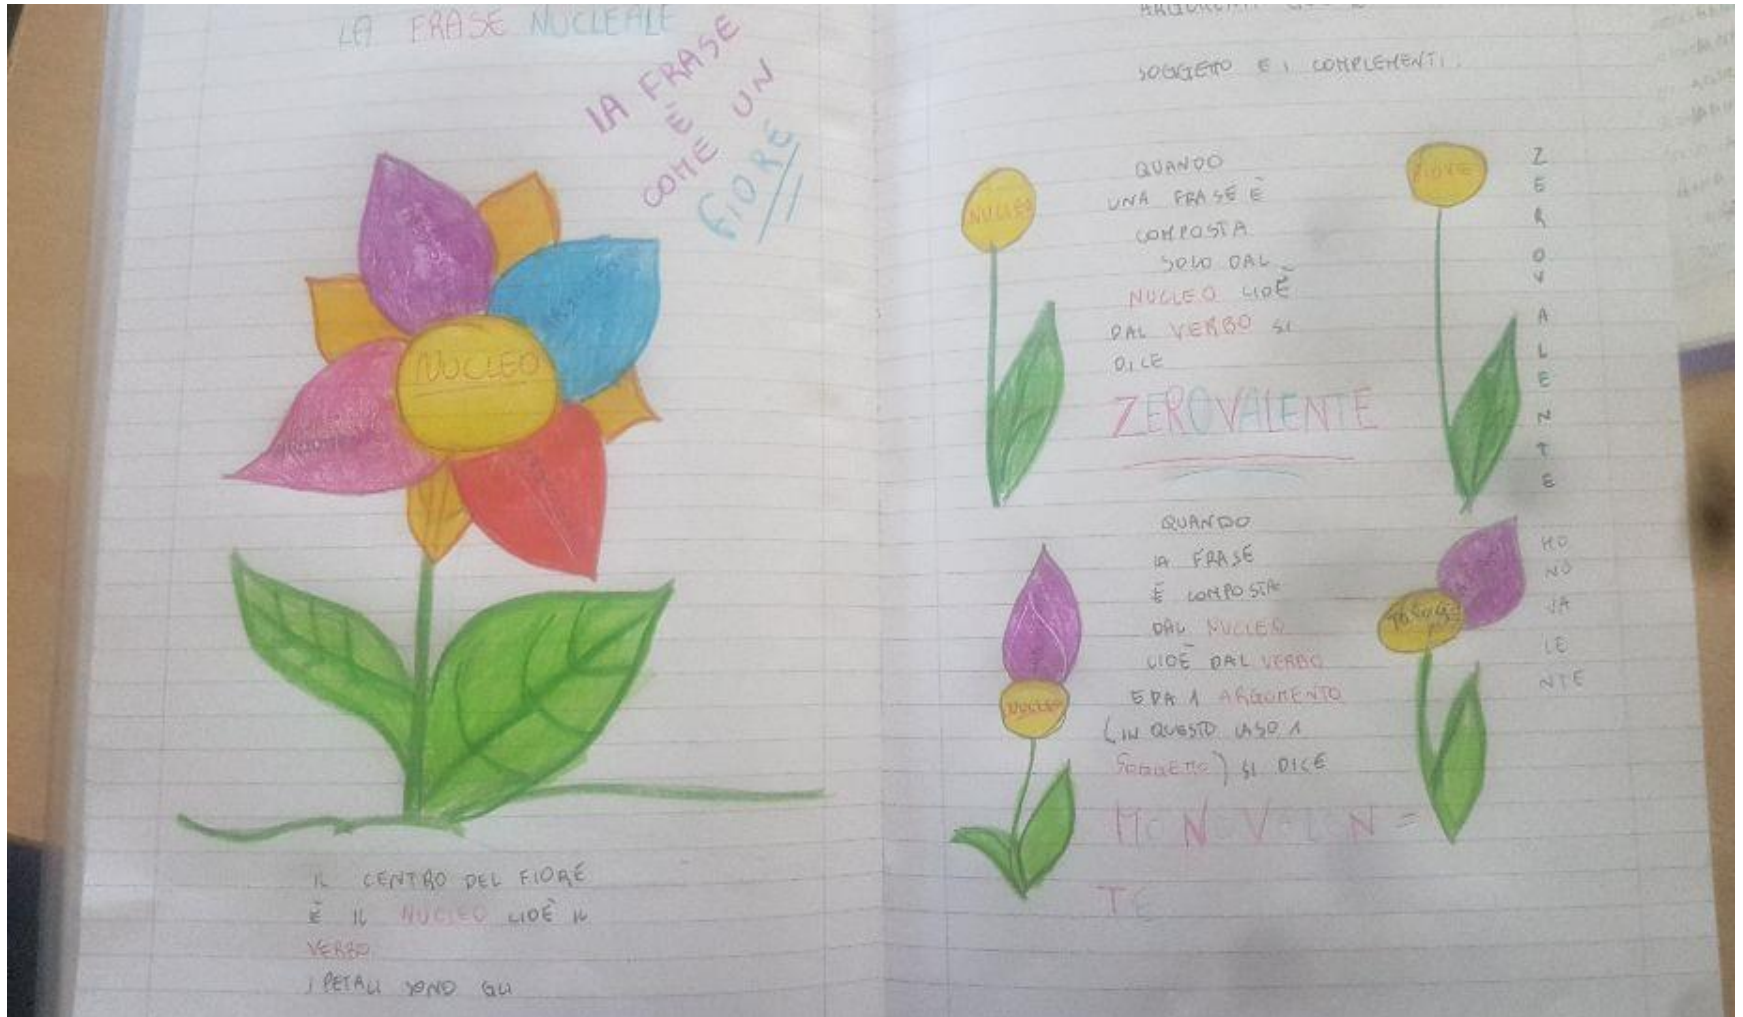 LA FRASE NUCLEALE
LA FRASE
È
COME UN
FIORE
NUCLEO
IL CENTRO DEL FIORE
È IL NUCLEO CIOÈ IL
VERBO
I PETALI SONO GLI
SOGGETTO E I COMPLEMENTI.
NUCLEO
QUANDO
UNA FRASE È
COMPOSTA
SOLO DAL
NUCLEO CIOÈ
DAL VERBO SI
DICE
ZEROVALENTE
PIOVE
ZEROVALENTE
NUCLEO
QUANDO
LA FRASE
È COMPOSTA
DAL NUCLEO
CIOÈ DAL VERBO
E DA 1 ARGOMENTO
(IN QUESTO CASO 1
SOGGETTO) SI DICE
MONOVALEN=
TE
MO
NO
VA
LE
NTE